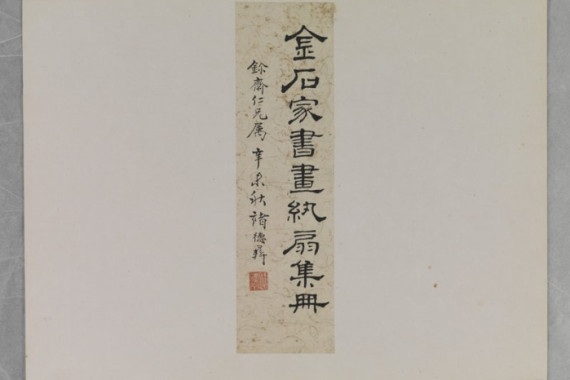 金石家書畫紈扇集冊
餘齋仁兄属 辛未秋 褚德彝